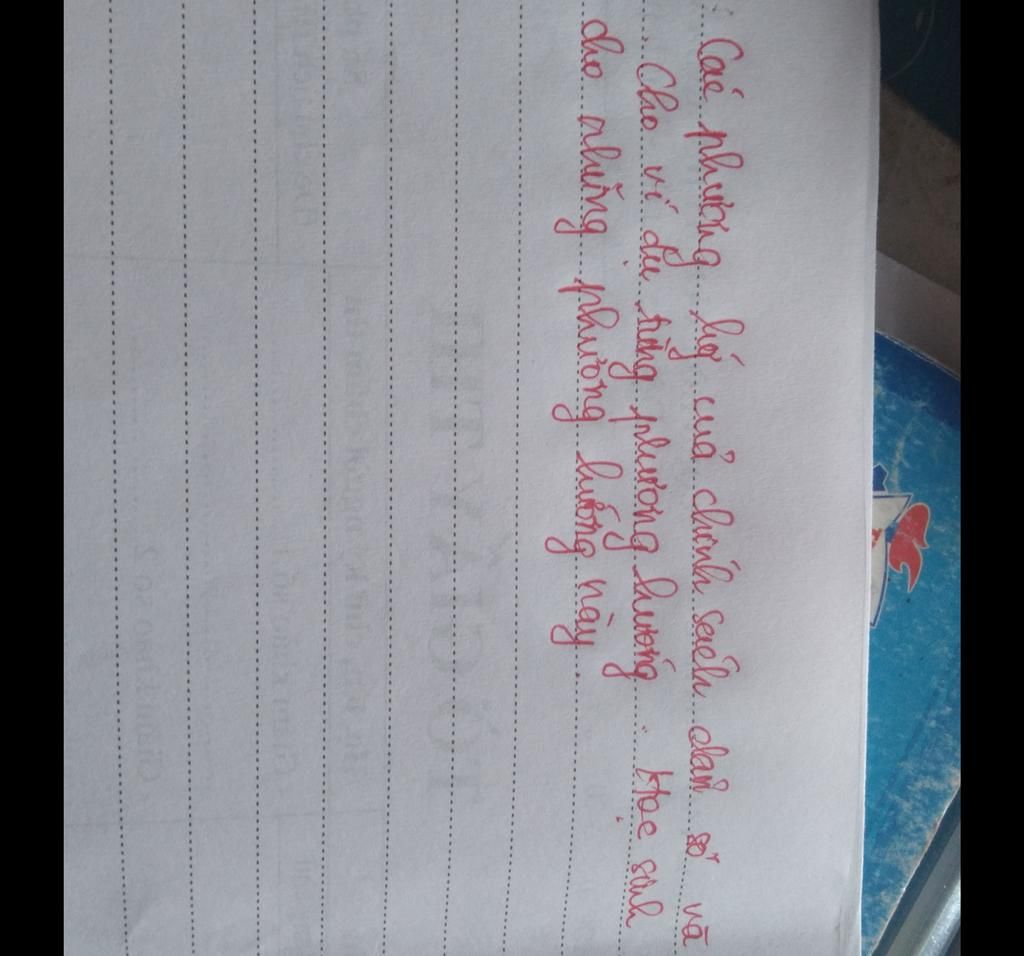 Các phương hg cuả chính sách dân số và
Cho ví dụ từng phương hướng. Học sinh
cho những phương hướng này.